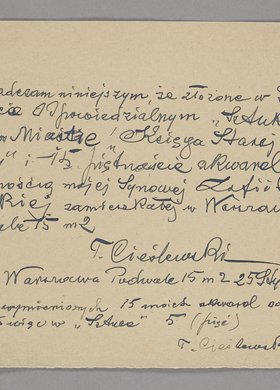 adczam niniejszym, że złożone w
Odpowiedzialnym „Sztuk
Mieście „Księga Starej
" i 15 piętnaście akwarel
nością mojej Synowej Zofii
kiej zamieszkałej w Warszaw
15 m 2
T. Cieślewski
Warszawa Podwale 15 m 2 25 Sty
wymienionych 15 moich akwarel od
w „Sztuce" 5 (pięć)
T. Cieślewsk